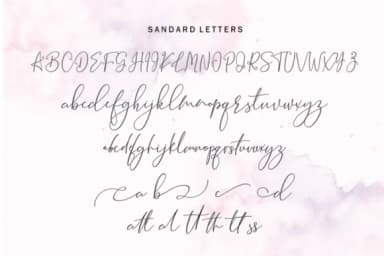 SANDARD LETTERS
ABCDEFGHIJKLMNOPQRSTUVWXYZ
abcdefghijklmnopqrstuvwxyz
abcdefghijklmnopqrstuvwxyz
a b c d
att al tt th tt ss